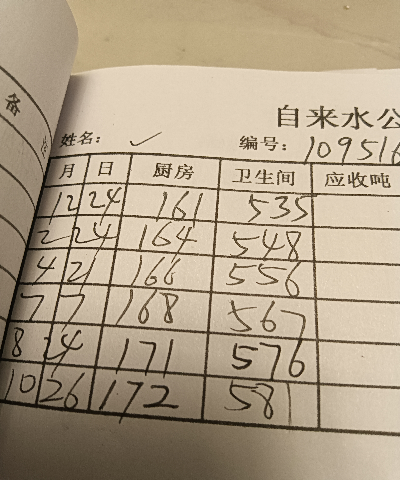 备
自来水公
姓名： ✓ 编号：109516
月 日 厨房 卫生间 应收吨
12 24 161 535
2 24 164 548
4 21 166 556
7 7 168 567
8 24 171 576
10 26 172 581